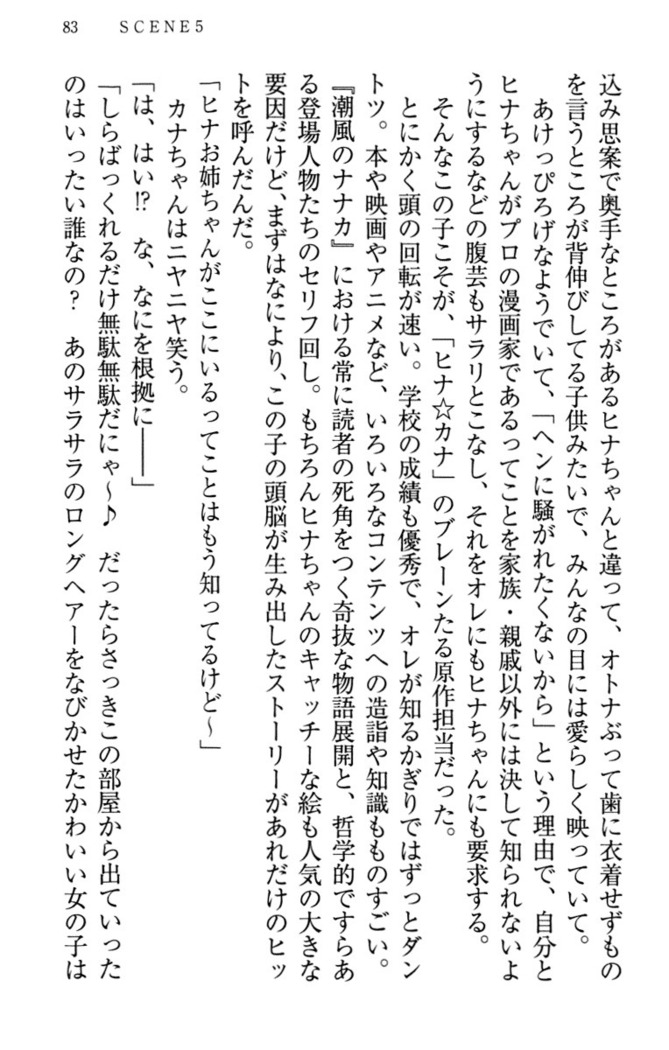 83 SCENE5
込み思案で奥手なところがあるヒナちゃんと違って、オトナぶって歯に衣着せずもの
を言うところが背伸びしてる子供みたいで、みんなの目には愛らしく映っていて。
あけっぴろげなようでいて、「ヘンに騒がれたくないから」という理由で、自分と
ヒナちゃんがプロの漫画家であるってことを家族・親戚以外には決して知られないよ
うにするなどの腹芸もサラリとこなし、それをオレにもヒナちゃんにも要求する。
そんなこの子こそが、「ヒナ☆カナ」のブレーンたる原作担当だった。
とにかく頭の回転が速い。学校の成績も優秀で、オレが知るかぎりではずっとダン
トツ。本や映画やアニメなど、いろいろなコンテンツへの造詣や知識もものすごい。
『潮風のナナカ』における常に読者の死角をつく奇抜な物語展開と、哲学的ですらあ
る登場人物たちのセリフ回し。もちろんヒナちゃんのキャッチーな絵も人気の大きな
要因だけど、まずはなにより、この子の頭脳が生み出したストーリーがあれだけのヒッ
トを呼んだんだ。
「ヒナお姉ちゃんがここにいるってことはもう知ってるけど〜」
カナちゃんはニヤニヤ笑う。
「は、はい!? な、なにを根拠に――」
「しらばっくれるだけ無駄無駄だにゃ〜♪ だったらさっきこの部屋から出ていった
のはいったい誰なの? あのサラサラのロングヘアーをなびかせたかわいい女の子は